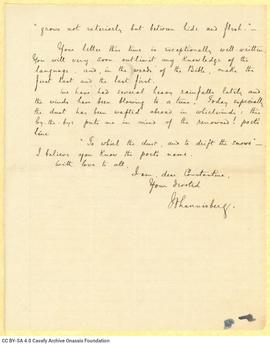 "grows not externally but between hide and flesh." —
Your letter this time is exceptionally well written
You will very soon outlimit my knowledge of the
language, and, in the words of the Bible, make the
first last and the last first.
We have had several heavy rainfalls lately and
the winds have been blowing to a time. Today especially
the dust has been wafted ahead in whirlwinds; this
by-the-bye puts me in mind of the renowned! poet's
line
"To whirl the dust, and to drift the snow" —
I believe you know the poet's name.
With love to all
I am, dear Constantine,
Your devoted
CC BY-SA 4.0 Cavafy Archive Onassis Foundation